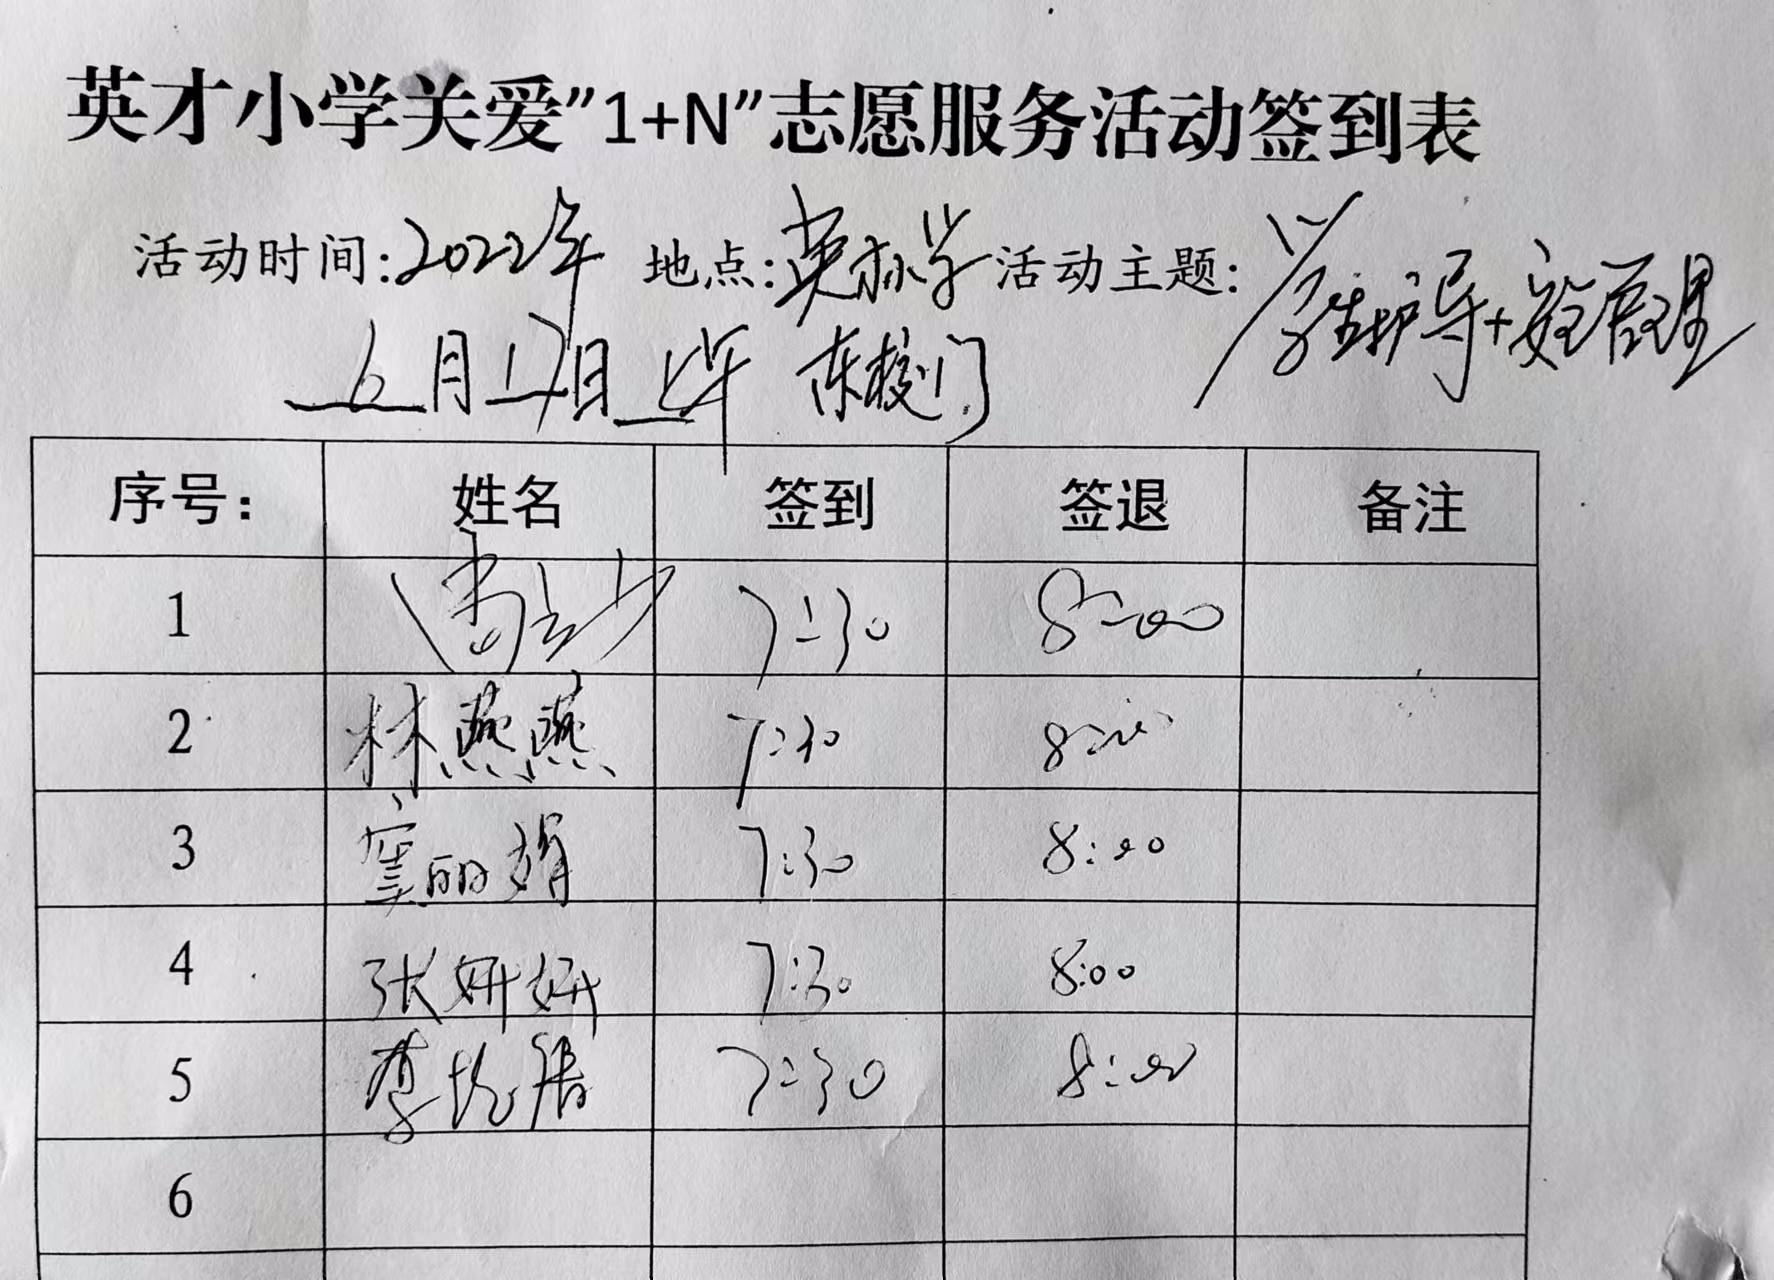 英才小学关爱”1+N”志愿服务活动签到表
活动时间:2022年 地点:英才小学 活动主题:学生护导+安全管理
6月17日上午 东校门
序号: 姓名 签到 签退 备注
1 7:30 8:00
2 林燕燕 7:30 8:00
3 丽娟 7:30 8:00
4 张妍妍 7:30 8:00
5 李 7:30 8:00
6